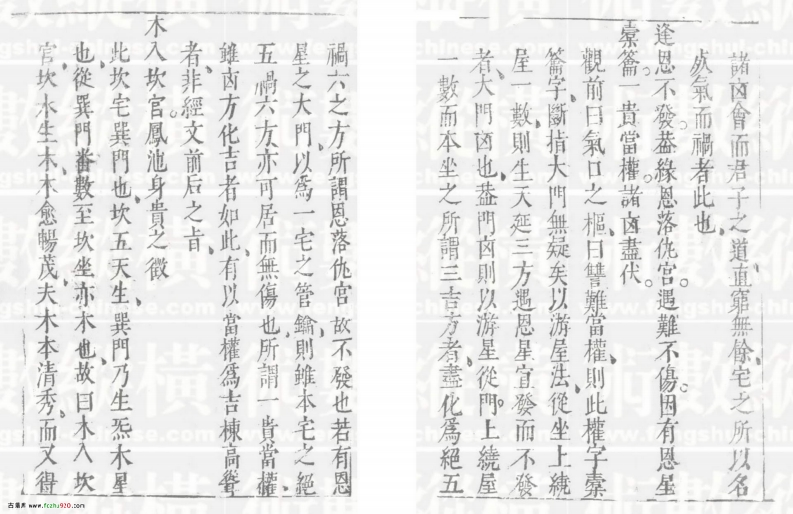 諸凶會而君子之道直窮無餘宅之所以名
炁氣而禍者此也
逢恩不發葢緣恩落仇宮遇難不傷因有恩星
槖籥一貴當權諸凶盡伏
觀前曰氣口之樞曰讐難當權則此權字槖
籥字斷指大門無疑矣以游星法從坐上繞
屋一數則生天延三方遇恩星宜發而不發
者大門凶也葢門凶則以游星從門上繞屋
一數而本坐之所謂三吉方者盡化為絕五
禍六之方所謂恩落仇宮故不發也若有恩
星之大門以為一宅之管鑰則雖本宅之絕
五禍六方亦可居而無傷也所謂一貴當權
雖凶方化吉者如此有以當權為吉棟高聳
者非經文前后之旨
木入坎宮鳳池身貴之徵
此坎宅巽門也坎五天生巽門乃生炁木星
也從巽門畨數至坎坐亦木也故曰木入坎
宮坎水生木木愈暢茂夫木本清秀而又得
古湯界 www.fczhu920.com